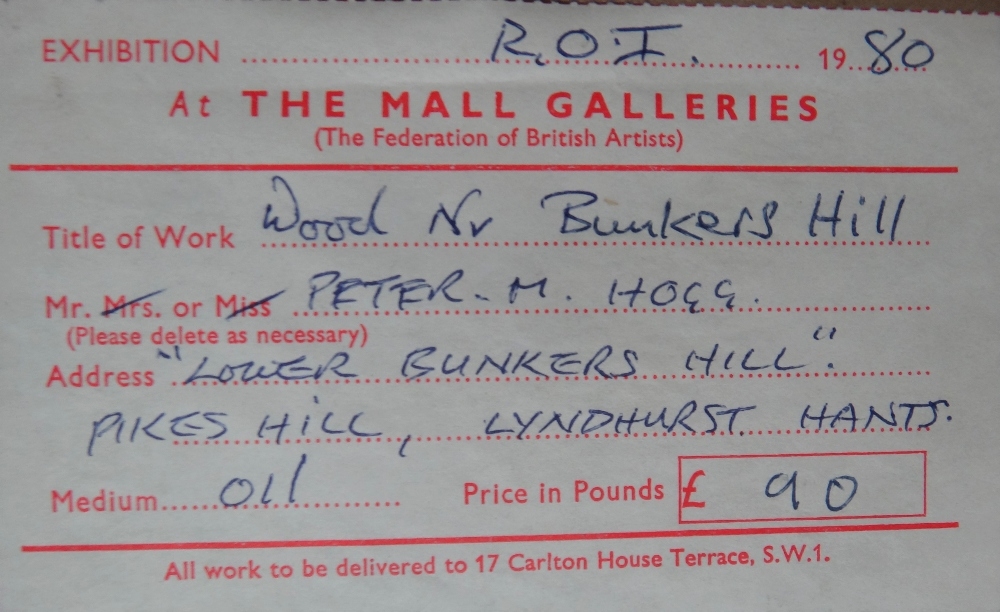 EXHIBITION R.O.I. 1980
At THE MALL GALLERIES
(The Federation of British Artists)
Title of Work Wood Nr Bunkers Hill
Mr. Mrs. or Miss PETER. M. HOGG.
(Please delete as necessary)
Address "LOWER BUNKERS HILL".
PIKES HILL, LYNDHURST HANTS.
Medium Oil Price in Pounds £ 90
All work to be delivered to 17 Carlton House Terrace, S.W.1.